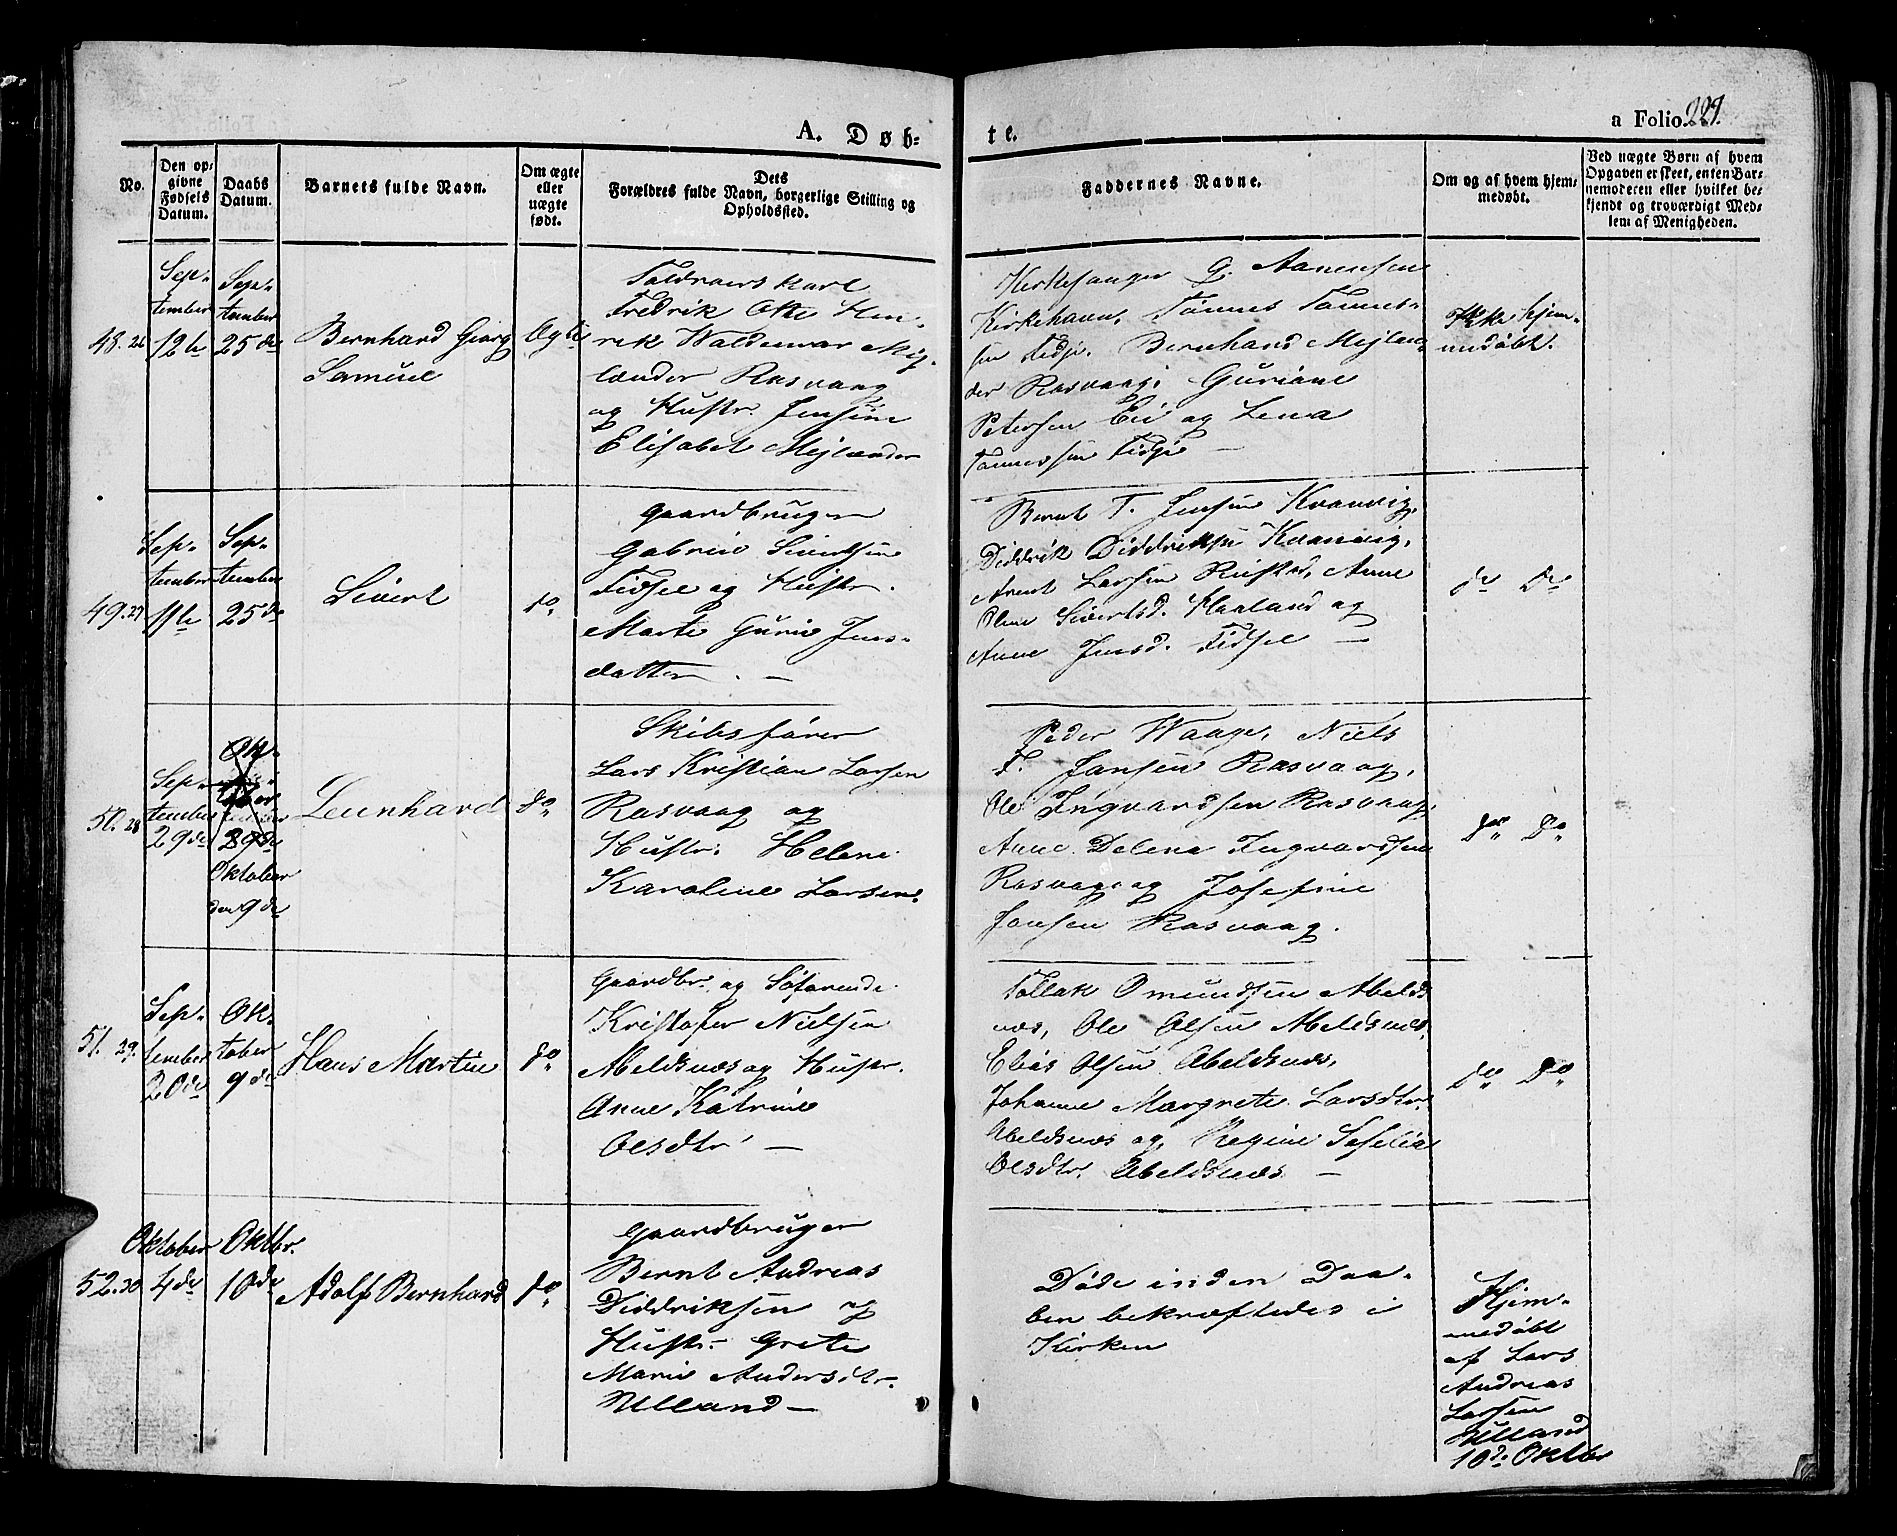 A. Døb-
te.
a Folio. 227.
No.
Den op-
givne
Fødsels
Datum.
Daabs
Datum.
Barnets fulde Navn.
Om ægte
eller
uægte
født.
Dets
Forældres fulde Navn, borgerlige Stilling og
Opholdssted.
Faddernes Navne.
Om og af hvem hjem-
medøbt.
Ved uægte Børn af hvem
Opgaven er skeet, enten Bar-
nemoderen eller hvilket be-
kjendt og troværdigt Med-
lem af Menigheden.
48. 26
Sep-
tember
12te
Sep-
tember
25de
Bernhard Georg
Samuel
Ægte
Toldroerskarl
Fredrik Otto Hen-
rik Waldemar Mej-
lænder Rasvaag
og Hustr. Jensine
Elisabet Mejlænder
Kirkesanger G. Aanensen
Kirkehavn, Tønnes Tønnes-
sen Fidje. Bernhard Mejlæn-
der Rasvaag, Guriane
Petersen Eie og Lena
Tønnessen Fidje —
Ikke hjem-
medøbt.
49. 27
Sep-
tember
11te
Sep-
tember
25de
Sivert
do
Gaardbruger
Gabriel Sivertsen
Fidsel og Hustr.
Marte Gurie Jens-
datter. —
Bernt T. Jensen Kvanvig,
Diddrik Diddriksen Kvanvig,
Arent Larsen Rustad, Anne
Oline Sivertsd. Haaland og
Anne Jensd. Fidsel —
do Do
50. 28
Sep-
tember
29de
29de
Oktober
den 9de
Leenhard
do
Skibsfører
Lars Kristian Larsen
Rasvaag og
Hustr. Helene
Karoline Larsen.
Peder Waage, Niels
F. Jansen Rasvaag,
Ole Ingvardsen Rasvaag,
Anne Delena Ingvardsen
Rasvaag og Josefine
Jansen Rasvaag.
do Do
51. 29.
Sep-
tember
20de
Ok-
tober
9de
Hans Martin
do
Gaardbr. og Søfarende
Kristofer Nielsen
Abeldsnæs og Hustr.
Anne Katrine
Olsdtr —
Tollak Omundsen Abelds-
næs, Ole Olsen Abeldsnæs,
Elias Olsen Abeldsnæs,
Johanne Margrete Larsdtr.
Abeldsnæs og Regine Sefelia
Olsdtr. Abeldsnæs —
Do Do
52. 30
Oktober
4de
Oktbr.
10de
Adolf Bernhard
do
Gaardbruger
Bernt Andreas
Diddriksen og
Hustr. Grete
Marie Andersdtr.
Ulland —
Døde inden Daa-
ben bekræftedes i
Kirken
Hjem-
medøbt
af Lars
Andreas
Larsen
Ulland
10de Oktbr